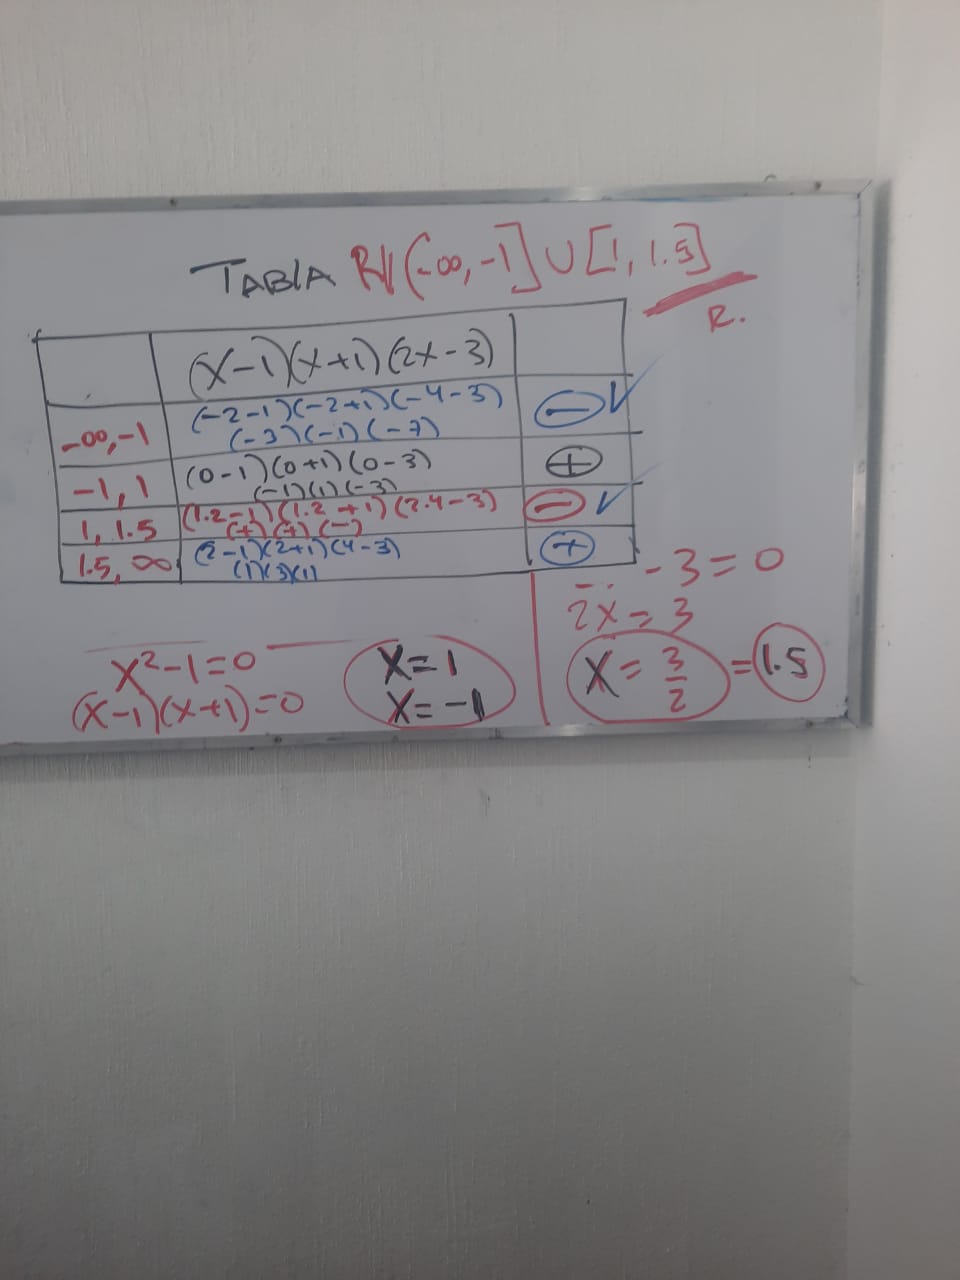 TABlA R// (-∞, -1] ∪ [1, 1.5]
R.
(x-1)(x+1)(2x-3)
-∞, -1 (-2-1)(-2+1)(-4-3) ⊖ ✓
(-3)(-1)(-7)
-1, 1 (0-1)(0+1)(0-3) ⊕
(-1)(1)(-3)
1, 1.5 (1.2-1)(1.2+1)(2.4-3) ⊖ ✓
(+)(+)(-)
1.5, ∞ (2-1)(2+1)(4-3) ⊕
(1)(3)(1)
-3=0
2x=3
x²-1=0 x=1 x=3/2 =1.5
(x-1)(x+1)=0 x=-1